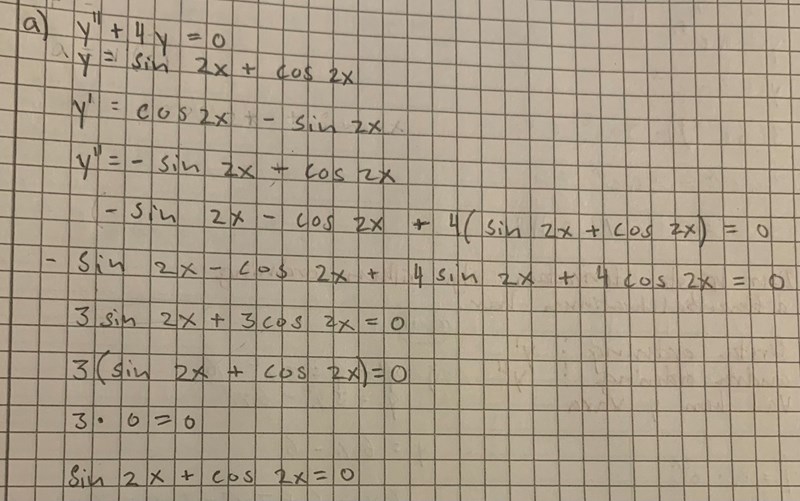 a) y" + 4y = 0
y = sin 2x + cos 2x
y' = cos 2x - sin 2x
y" = - sin 2x + cos 2x
- sin 2x - cos 2x + 4(sin 2x + cos 2x) = 0
- sin 2x - cos 2x + 4 sin 2x + 4 cos 2x = 0
3 sin 2x + 3 cos 2x = 0
3(sin 2x + cos 2x) = 0
3 · 0 = 0
sin 2x + cos 2x = 0